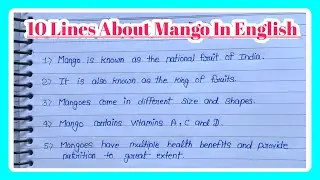 10 Lines About Mango In English
1) Mango is known as the national fruit of India.
2) It is also known as the king of fruits.
3) Mangoes come in different size and shapes.
4) Mango contains Vitamins A, C and D.
5) Mangoes have multiple health benefits and provide
nutrition to great extent.